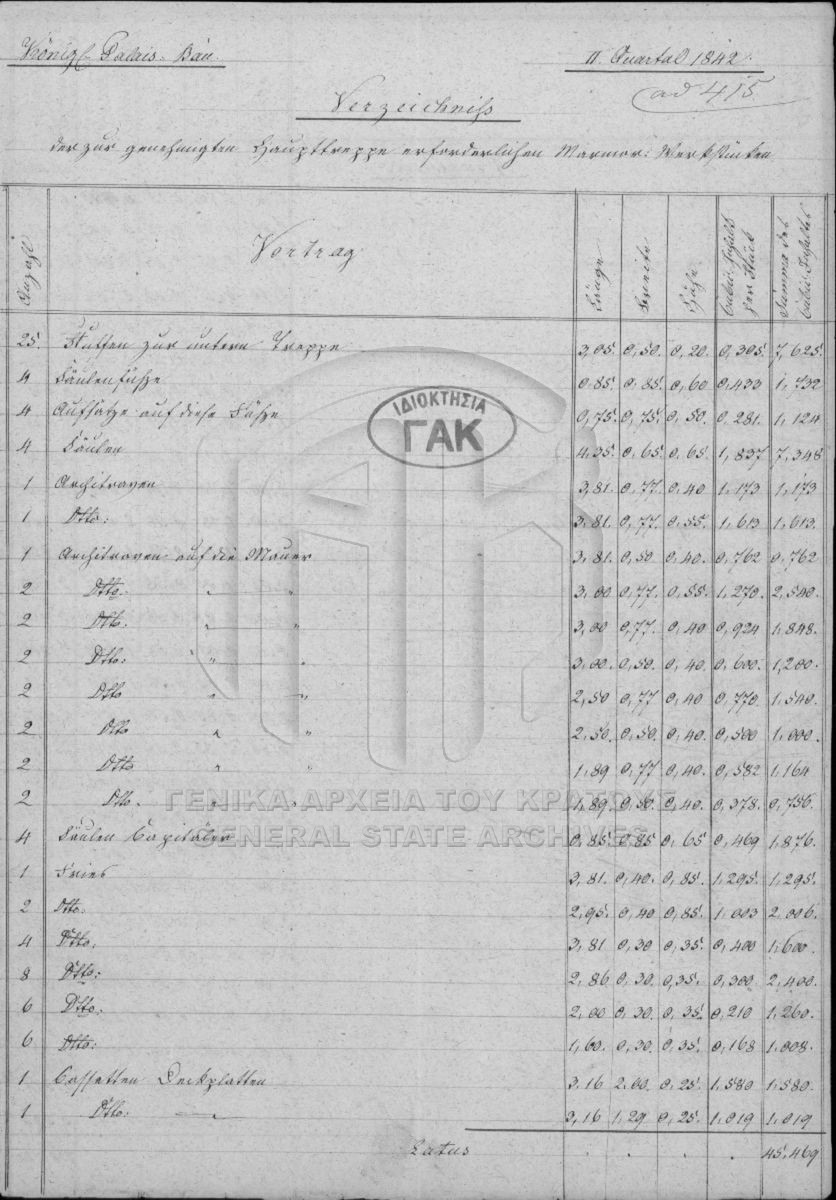 Königl. Palais-Bau
II. Quartal 1842.
ad 415
Verzeichniss
der zur genehmigten Haupttreppe erforderlichen Marmor-Werkstücken
Anzahl Vortrag Länge Breite Höhe Cubic Inhalt per Stück Summa des Cubic Inhaltes
25. Stuffen zur untern Treppe 3,05. 0,50. 0,20. 0,305. 7,625.
4 Säulenfüße 0,85. 0,85. 0,60 0,433 1,732
4 Aufsätze auf diese Füße 0,75. 0,75. 0,50. 0,281. 1,124
4 Säulen 4,35. 0,65. 0,65. 1,837 7,348
1 Architraven 3,81. 0,77. 0,40 1,173 1,173
1 Dtto: 3,81. 0,77. 0,55. 1,613 1,613.
1 Architraven auf die Mauer 3,81. 0,50 0,40. 0,762 0,762
2 Dtto: " " 3,00 0,77. 0,55. 1,270. 2,540.
2 Dtto. " " 3,00 0,77. 0,40 0,924 1,848.
2 Dtto: " " 3,00. 0,50. 0,40. 0,600. 1,200.
2 Dtto " " 2,50 0,77 0,40 0,770 1,540.
2 Dtto " " 2,50. 0,50. 0,40. 0,500 1,000.
2 Dtto " " 1,89 0,77 0,40. 0,582 1,164
2 Dtto. " " 1,89. 0,50. 0,40. 0,378. 0,756.
4 Säulen Capitäler 0,85. 0,85 0,65 0,469 1,876.
1 Fries 3,81. 0,40. 0,85. 1,295. 1,295.
2 Dtto: 2,95. 0,40 0,85. 1,003 2,006.
4 Dtto. 3,81 0,30 0,35. 0,400 1,600.
8 Dtto: 2,86 0,30. 0,35. 0,300. 2,400.
6 Dtto: 2,00 0,30. 0,35. 0,210 1,260.
6 Dtto: 1,60. 0,30. 0,35. 0,168 1,008.
1 Cassetten Deckplatten 3,16 2,00. 0,25. 1,580 1,580.
1 Dtto: 3,16 1,29 0,25. 1,019 1,019
Latus 45,469
ΙΔΙΟΚΤΗΣΙΑ
ΓΑΚ
ΓΕΝΙΚΑ ΑΡΧΕΙΑ ΤΟΥ ΚΡΑΤΟΥΣ
GENERAL STATE ARCHIVES